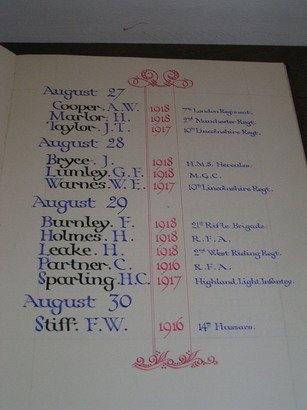 August 27
Cooper. A.W. 1918 7th London Regiment.
Marlor. H. 1918 2nd Manchester Regt.
Taylor. J.T. 1917 10th Lincolnshire Regt.
August 28
Bryce. J. 1918 H.M.S. Hercules.
Lumley. G.F. 1918 M.G.C.
Warnes. W.E. 1917 10th Lincolnshire Regt.
August 29
Burnley. F. 1918 21st Rifle Brigade.
Holmes. H. 1918 R.F.A.
Leake. H. 1918 2nd West Riding Regt.
Partner. C. 1916 R.F.A.
Sparling. H.C. 1917 Highland Light Infantry.
August 30
Stiff. F.W. 1916 14th Hussars.